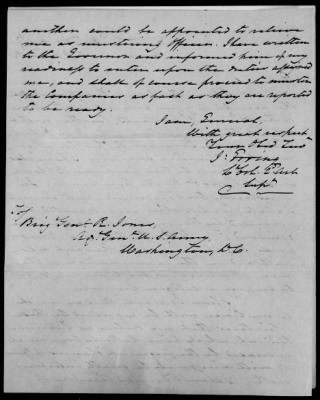 another would be appointed to relieve
me as mustering officer. I have written
to the Governor and informed him of my
readiness to enter upon the duties assigned
me, and shall of course proceed to muster
the Companies as fast as they are reported
to be ready.
I am, General,
With great respect
Your Obd Servt
J. Erving
Col. 2 Art
Supt.
To/
Brig. Genl. R. Jones
Adj. Genl. U. S. Army
Washington, D. C.